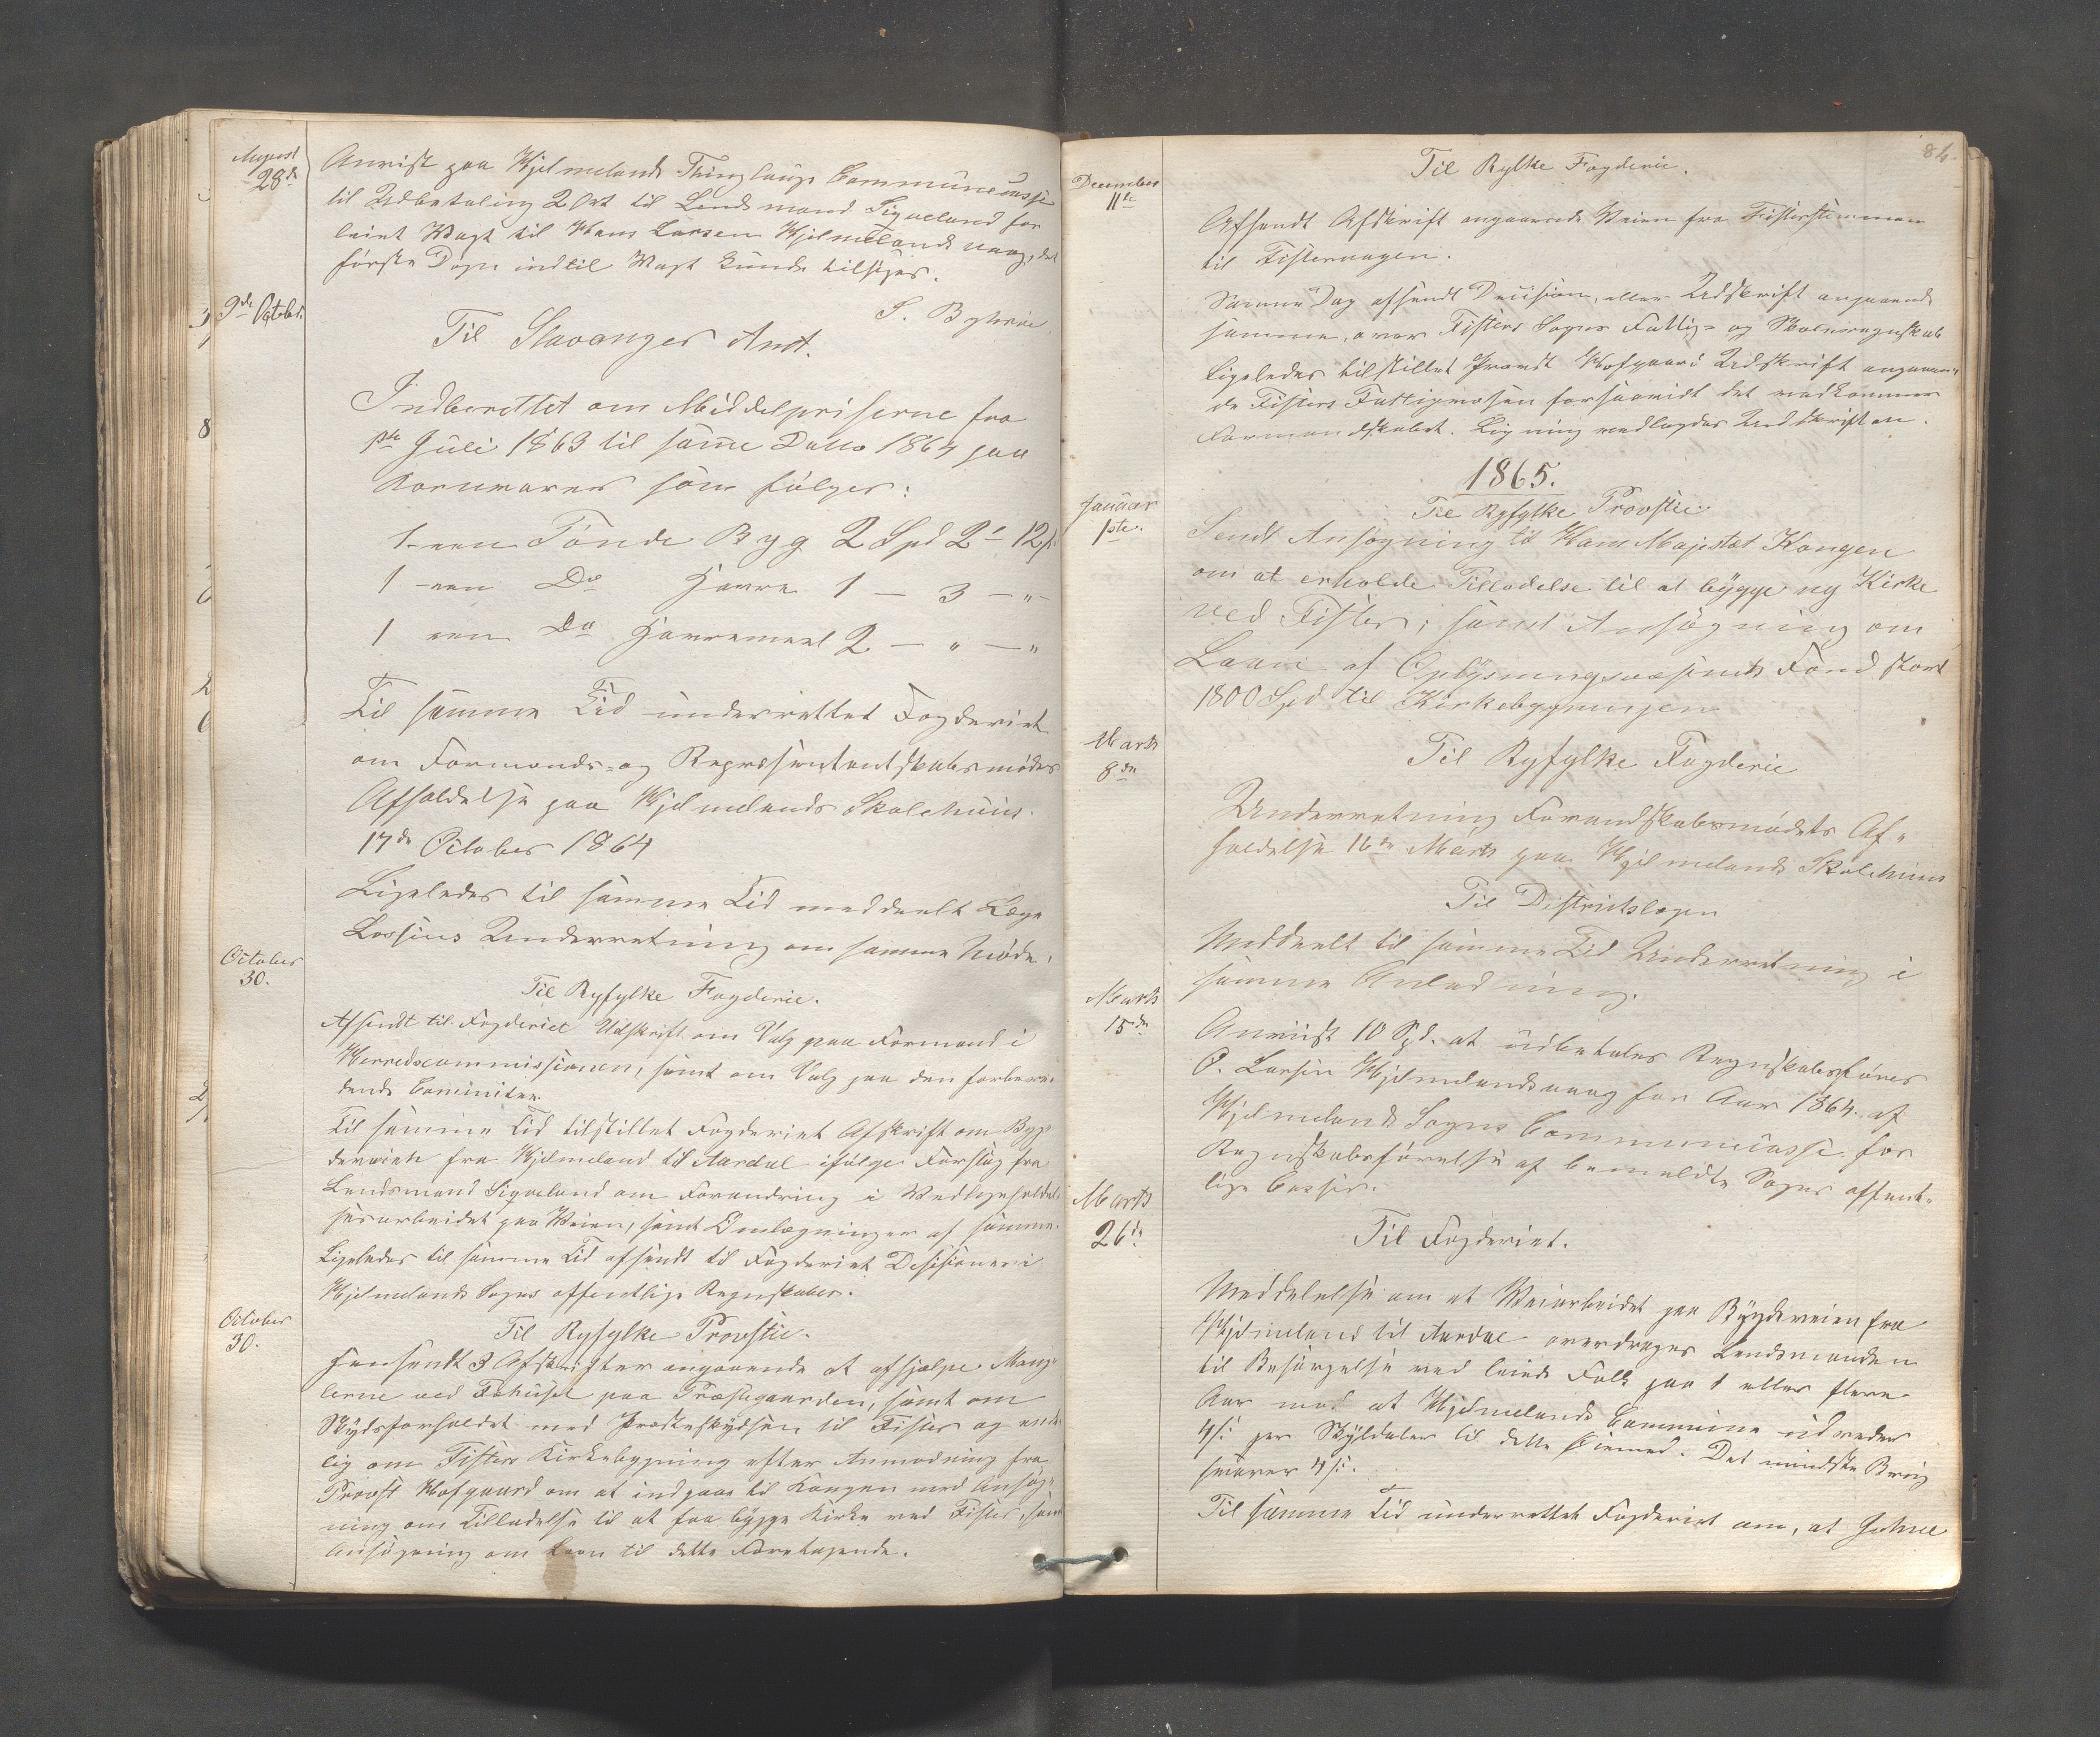 August
28de
Anvist paa Hjelmelands Thinglaugs Communecasse
til Udbetaling 2 Ort til Lendsmand Sigveland for
leiet Vagt til Hans Larsen Hjelmelandsvaag, det
første Døgn indtil Vagt kunde tilsiges.
S.
9de October
Til Stavanger Amt.
Indberettet om Middelpriserne fra
1ste Juli 1863 til samme Datto 1864 paa
Kornvarer som følger:
1 een Tønde Byg 2 Spd 2 " 12 s
1 een Do Havre 1 — 3 — " —
1 een Do Havremeel 2 — " — "
Til samme Tid underrettet Fogderiet
om Formands- og Repræsentantskabsmødes
Afholdelse paa Hjelmelands Skolehuus
17de October 1864
Ligeledes til samme Tid meddeelt Læge
Lossius Underretning om samme Møde.
October
30.
Til Ryfylke Fogderie.
Afsendt til Fogderiet Udskrift om Valg paa Formand i
Herredscommissionen, samt om Valg paa den forbere-
dende Comimitee
Til samme Tid tilstillet Fogderiet Afskrift om Byg-
deveien fra Hjelmeland til Aardal ifølge Forslag fra
Lendsmand Sigveland om Forandring i Vedligeholdel-
sesarbeidet paa Veien, samt Omlægninger af samme.
Ligeledes til samme Tid afsendt til Fogderiet Desisioner i
Hjelmelands Sogns offentlige Regnskaber.
October
30.
Til Ryfylke Provstie.
Fremsendt 3 Afskrifter angaaende at afhjælpe Mang-
lerne ved Fæhuset paa Præstegaarden, samt om
Skydsforholdet med Præsteskydsen til Fister og ende-
lig om Fisters Kirkebygning efter Anmodning fra
Provst Hofgaard om at indgaae til Kongen med Ansøg-
ning om Tilladelse til at faa bygge Kirke ved Fister, samt
Ansøgning om Laan til dette Foretagende.
84.
Til Rylke Fogderie.
December
11te
Afsendt Afskrift angaaende Veien fra Fisterstemmen
til Fistervaagen.
Samme Dag afsendt Decision, eller Udskrift angaaende
samme, over Fisters Sogns Fattig- og Skoleregnskab
Ligeledes tilstillet Provst Hofgaard Udskrift angaaen-
de Fisters Fattigvæsen forsaavidt det vedkommer
Formandskabet. Ligning vedlagdes Udskriften.
1865.
Januar
1ste.
Til Ryfylke Provstie
Sendt Ansøgning til Hans Majestæt Kongen
om at erholde Tilladelse til at bygge ny Kirke
ved Fister; samt Ansøgning om
Laan af Oplysningsvæsenets Fond stort
1800 Spd til Kirkebygningen
Marts
8de
Til Ryfylke Fogderie
Underretning Formandskabsmødets Af-
holdelse 16de Marts paa Hjelmelands Skolehuus
Til Districtslægen
Meddeelt til samme Tid Underretning i
samme Anledning.
Marts
15de
Anviist 10 Spd. at udbetales Regnskabsfører
O. Larsen Hjelmelandsvaag for Aar 1864 af
Hjelmelands Sogns Communecasse for
Regnskabsførelse af bemeldte Sogns offent-
lige Casser.
Marts
26de
Til Fogderiet.
Meddelelse om at Veiarbeidet paa Bygdeveien fra
Hjelmeland til Aardal overdrages Lendsmanden
til Besørgelse ved leiede Folk paa 1 eller flere
Aar mod at Hjelmelands Commune udreder
4 s per Skylddaler til dette Øiemed. Det mindste Brug
svarer 4 s.
Til samme Tid underrettet Fogderiet om, at